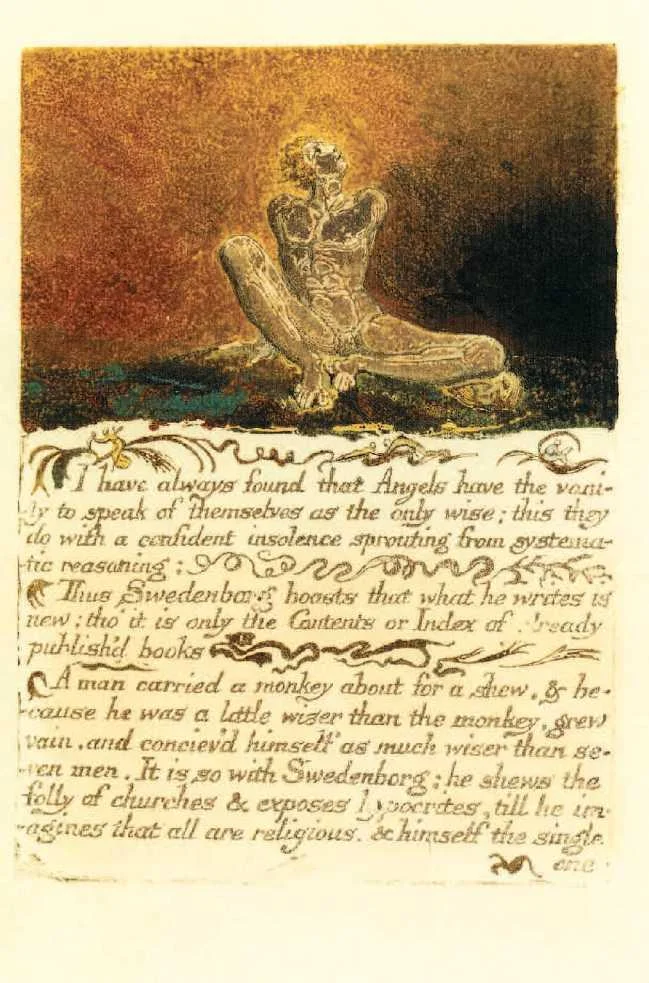 I have always found that Angels have the vani-
-ty to speak of themselves as the only wise; this they
do with a confident insolence sprouting from systema-
-tic reasoning:
Thus Swedenborg boasts that what he writes is
new; tho' it is only the Contents or Index of already
publish'd books
A man carried a monkey about for a shew, & be-
-cause he was a little wiser than the monkey, grew
vain, and conciev'd himself as much wiser than se-
-ven men. It is so with Swedenborg; he shews the
folly of churches & exposes hypocrites, till he im-
-agines that all are religious. & himself the single
one